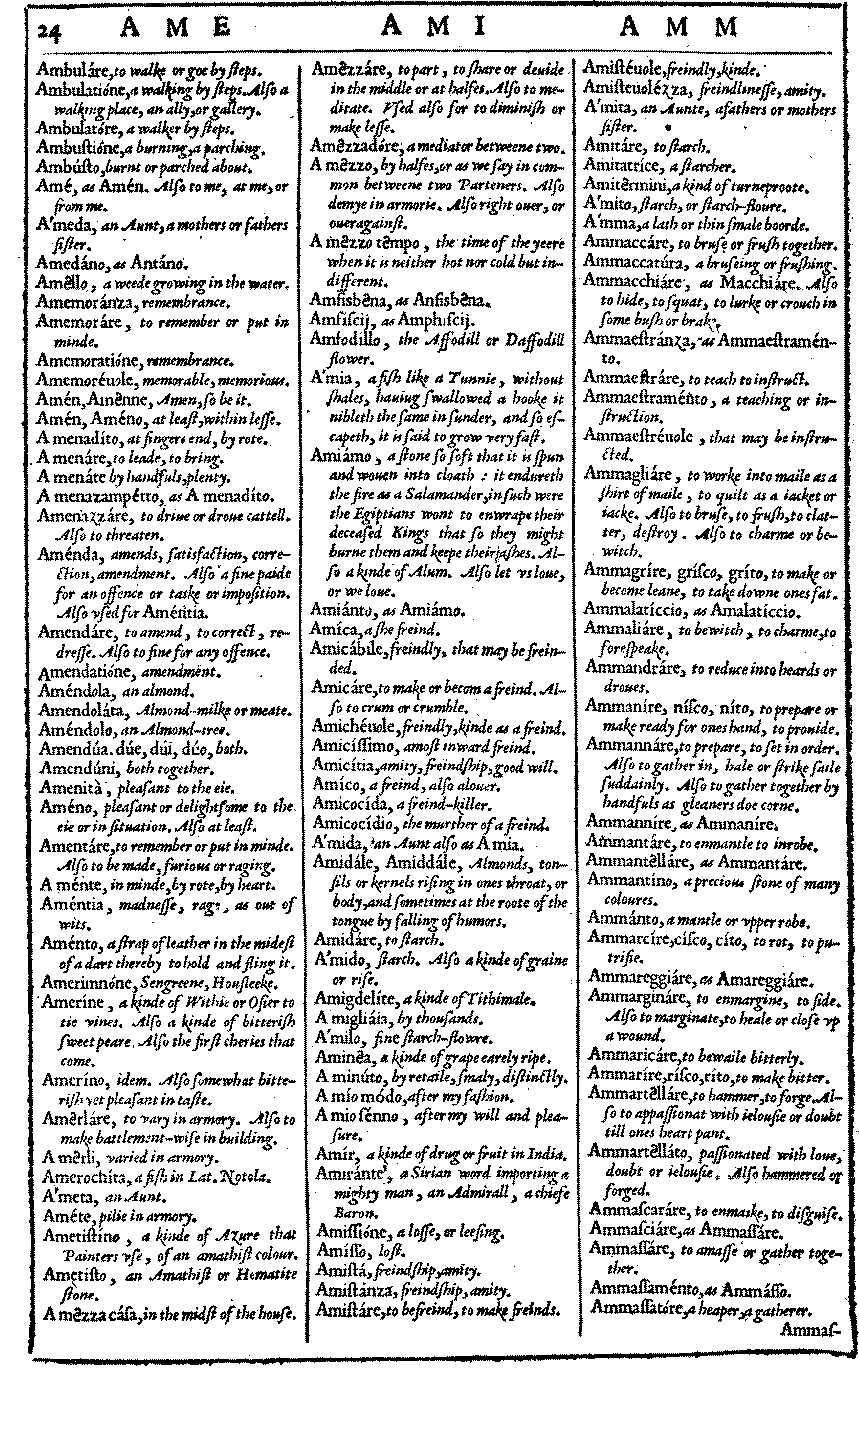 24 A M E A M I A M M
Ambuláre, to walke or goe by steps.
Ambulatióne, a walking by steps. Also a
walking place, an ally, or gallery.
Ambulatóre, a walker by steps.
Ambustióne, a burning, a parching.
Ambústo, burnt or parched about.
Amé, as Amén. Also to me, at me, or
from me.
A'meda, an Aunt, a mothers or fathers
sister.
Amedáno, as Antáno.
Amêllo, a weede growing in the water.
Amemoránza, remembrance.
Amemoráre, to remember or put in
minde.
Amemoratióne, remembrance.
Amemoréuole, memorable, memorious.
Amén, Amênne, Amen, so be it.
Amén, Améno, at least, within lesse.
A menadíto, at fingers end, by rote.
A menáre, to leade, to bring.
A menáte by handfuls, plenty.
A menazampétto, as A menadíto.
Amenazzáre, to driue or droue cattell.
Also to threaten.
Aménda, amends, satisfaction, corre-
ction, amendment. Also a fine paide
for an offence or taske or imposition.
Also vsed for Améntia.
Amendáre, to amend, to correct, re-
dresse. Also to fine for any offence.
Amendatióne, amendment.
Améndola, an almond.
Amendoláta, Almond-milke or meate.
Améndolo, an Almond-tree.
Amendúa. dúe, dúi, dúo, both.
Amendúni, both together.
Amenità, pleasant to the eie.
Améno, pleasant or delightsome to the
eie or in situation. Also at least.
Amentáre, to remember or put in minde.
Also to be made, furious or raging.
A ménte, in minde, by rote, by heart.
Améntia, madnesse, rage, as out of
wits.
Aménto, a strap of leather in the midest
of a dart thereby to hold and fling it.
Amerimnóne, Sengreene, Housleeke.
Ameríne, a kinde of Withie or Osier to
tie vines. Also a kinde of bitterish
sweet peare. Also the first cheries that
come.
Ameríno, idem. Also somewhat bitte-
rish yet pleasant in taste.
Amêrláre, to vary in armory. Also to
make battlement-wise in building.
A mêrli, varied in armory.
Amerochíta, a fish in Lat. Notola.
A'meta, an Aunt.
Améte, pilie in armory.
Ametistíno, a kinde of Azure that
Painters vse, of an amathist colour.
Ametísto, an Amathist or Hematite
stone.
A mêzza cása, in the midst of the house.
Amêzzáre, to part, to share or deuide
in the middle or at halfes. Also to me-
ditate. Vsed also for to diminish or
make lesse.
Amêzzadóre, a mediator betweene two.
A mêzzo, by halfes, or as we say in com-
mon betweene two Parteners. Also
demye in armorie. Also right ouer, or
oueragainst.
A mêzzo têmpo, the time of the yeere
when it is neither hot nor cold but in-
different.
Amfisbêna, as Anfisbêna.
Amfiscij, as Amphiscij.
Amfodíllo, the Affodill or Daffodill
flower.
A'mia, a fish like a Tunnie, without
shales, hauing swallowed a hooke it
nibleth the same in sunder, and so es-
capeth, it is said to grow very fast.
Amiámo, a stone so soft that it is spun
and wouen into cloath: it endureth
the fire as a Salamander, in such were
the Egiptians wont to enwrape their
deceased Kings that so they might
burne them and keepe their ashes. Al-
so a kinde of Alum. Also let vs loue,
or we loue.
Amiánto, as Amiámo.
Amíca, a she freind.
Amicábile, freindly, that may be frein-
ded.
Amicáre, to make or becom a freind. Al-
so to crum or crumble.
Amichéuole, freindly, kinde as a freind.
Amicíssimo, a most inward freind.
Amicítia, amity, freindship, good will.
Amíco, a freind, also a louer.
Amicocída, a freind-killer.
Amicocídio, the murther of a freind.
A'mida, an Aunt also as A mia.
Amidále, Amiddále, Almonds, ton-
sils or kernels rising in ones throat, or
body, and sometimes at the roote of the
tongue by falling of humors.
Amidáre, to starch.
A'mido, starch. Also a kinde of graine
or rise.
Amigdelíte, a kinde of Tithimale.
A migliáia, by thousands.
A'milo, fine starch-flowre.
Aminêa, a kinde of grape earely ripe.
A minúto, by retaile, smaly, distinctly.
A mío módo, after my fashion.
A mio sénno, after my will and plea-
sure.
Amír, a kinde of drug or fruit in India.
Amiránte, a Sirian word importing a
mighty man, an Admirall, a chiefe
Baron.
Amissióne, a losse, or leesing.
Amísso, lost.
Amistá, freindship, amity.
Amistánza, freindship, amity.
Amistáre, to befreind, to make freinds.
Amistéuole, freindly, kinde.
Amisteuolézza, freindlinesse, amity.
A'mita, an Aunte, a fathers or mothers
sister.
Amitáre, to starch.
Amitatríce, a starcher.
Amitêrmini, a kind of turneproote.
A'mito, starch, or starch-floure.
A'mma, a lath or thin smale boorde.
Ammaccáre, to bruse or frush together.
Ammaccatúra, a bruseing or frushing.
Ammacchiáre, as Macchiáre. Also
to hide, to squat, to lurke or crouch in
some bush or brake.
Ammaestránza, as Ammaestramén-
to.
Ammaestráre, to teach to instruct.
Ammaestraménto, a teaching or in-
struction.
Ammaestréuole, that may be instru-
cted.
Ammagliáre, to worke into maile as a
shirt of maile, to quilt as a iacket or
iacke. Also to bruse, to frush, to clat-
ter, destroy. Also to charme or be-
witch.
Ammagríre, grísco, gríto, to make or
become leane, to take downe ones fat.
Ammalatíccio, as Amalatíccio.
Ammaliáre, to bewitch, to charme, to
forespeake.
Ammandráre, to reduce into heards or
droues.
Ammaníre, nísco, níto, to prepare or
make ready for ones hand, to prouide.
Ammannáre, to prepare, to set in order.
Also to gather in, hale or strike saile
suddainly. Also to gather together by
handfuls as gleaners doe corne.
Ammanníre, as Ammaníre.
Ammantáre, to enmantle to inrobe.
Ammantêlláre, as Ammantáre.
Ammantíno, a precious stone of many
coloures.
Ammánto, a mantle or vpper robe.
Ammarcíre, císco, cíto, to rot, to pu-
trifie.
Ammareggiáre, as Amareggiáre.
Ammargináre, to enmargine, to side.
Also to marginate, to heale or close vp
a wound.
Ammaricáre, to bewaile bitterly.
Ammaríre, rísco, ríto, to make bitter.
Ammartêlláre, to hammer, to forge. Al-
so to appassionat with ielousie or doubt
till ones heart pant.
Ammartêlláto, passionated with loue,
doubt or ielousie. Also hammered or
forged.
Ammascaráre, to enmaske, to disguise.
Ammasciáre, as Ammassáre.
Ammassáre, to amasse or gather toge-
ther.
Ammassaménto, as Ammásso.
Ammassatóre, a heaper, a gatherer.
Ammas-